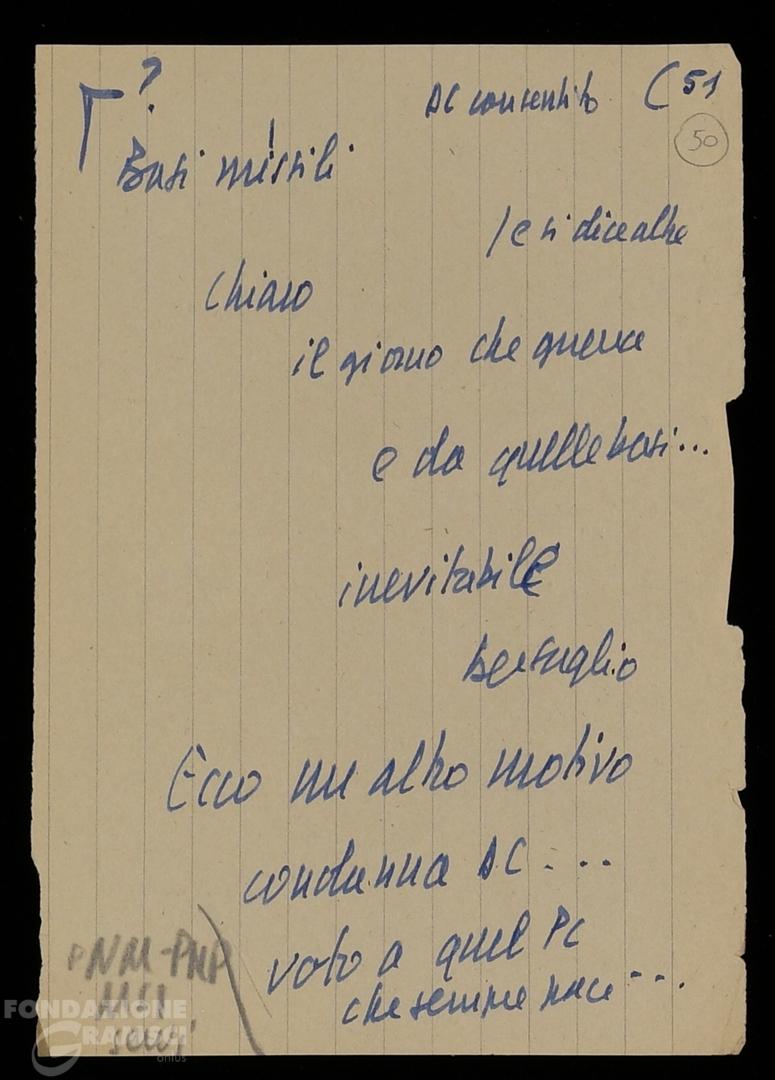 ?
DC consentito (51
50
Basi missili
/ e si dice altre
Chiaro
il giorno che guerra
e da quelle basi...
inevitabile
bersaglio
Ecco un altro motivo
condanna DC....
voto a quel PC
che sempre pace...
PNM-PMP
MSI
FONDAZIONE
GRAMSCI
onlus